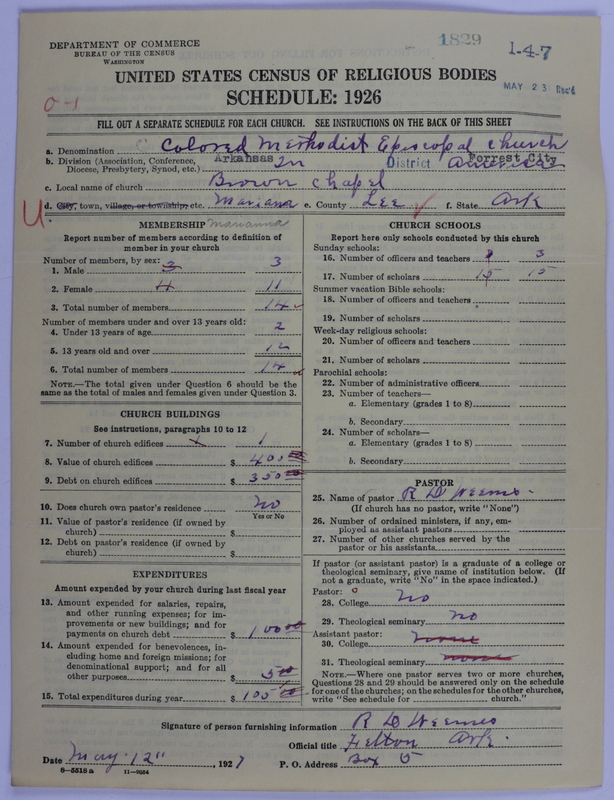 DEPARTMENT OF COMMERCE
BUREAU OF THE CENSUS
WASHINGTON
1829
1-4-7
MAY 23 Rec'd
UNITED STATES CENSUS OF RELIGIOUS BODIES
SCHEDULE: 1926
0-1
FILL OUT A SEPARATE SCHEDULE FOR EACH CHURCH. SEE INSTRUCTIONS ON THE BACK OF THIS SHEET
a. Denomination Colored Methodist Episcopal Church
b. Division (Association, Conference, Diocese, Presbytery, Synod, etc.) Arkansas In District America Forrest City
c. Local name of church Brown Chapel
d. City, town, village, or township, etc. Mariana e. County Lee f. State Ark
U
MEMBERSHIP Marianna
Report number of members according to definition of
member in your church
Number of members, by sex:
1. Male 3 3
2. Female 11 11
3. Total number of members 14
Number of members under and over 13 years old:
4. Under 13 years of age 2
5. 13 years old and over 12
6. Total number of members 14
NOTE.—The total given under Question 6 should be the
same as the total of males and females given under Question 3.
CHURCH BUILDINGS
See instructions, paragraphs 10 to 12
7. Number of church edifices 1 1
8. Value of church edifices $ 400 00
9. Debt on church edifices $ 350 00
10. Does church own pastor's residence No
Yes or No
11. Value of pastor's residence (if owned by
church) $
12. Debt on pastor's residence (if owned by
church) $
EXPENDITURES
Amount expended by your church during last fiscal year
13. Amount expended for salaries, repairs,
and other running expenses; for im-
provements or new buildings; and for
payments on church debt $ 100 00
14. Amount expended for benevolences, in-
cluding home and foreign missions; for
denominational support; and for all
other purposes $ 5 00
15. Total expenditures during year $ 105 00
CHURCH SCHOOLS
Report here only schools conducted by this church
Sunday schools:
16. Number of officers and teachers 3
17. Number of scholars 15 15
Summer vacation Bible schools:
18. Number of officers and teachers
19. Number of scholars
Week-day religious schools:
20. Number of officers and teachers
21. Number of scholars
Parochial schools:
22. Number of administrative officers
23. Number of teachers—
a. Elementary (grades 1 to 8)
b. Secondary
24. Number of scholars—
a. Elementary (grades 1 to 8)
b. Secondary
PASTOR
25. Name of pastor R D Weems
(If church has no pastor, write "None")
26. Number of ordained ministers, if any, em-
ployed as assistant pastors
27. Number of other churches served by the
pastor or his assistants
If pastor (or assistant pastor) is a graduate of a college or
theological seminary, give name of institution below. (If
not a graduate, write "No" in the space indicated.)
Pastor:
28. College No
29. Theological seminary No
Assistant pastor:
30. College None
31. Theological seminary None
NOTE.—Where one pastor serves two or more churches,
Questions 28 and 29 should be answered only on the schedule
for one of the churches; on the schedules for the other churches,
write "See schedule for church."
Signature of person furnishing information R D Weems
Official title Felton Ark.
Date May 12, 1927 P. O. Address Box 5
8-5518a 11-9054